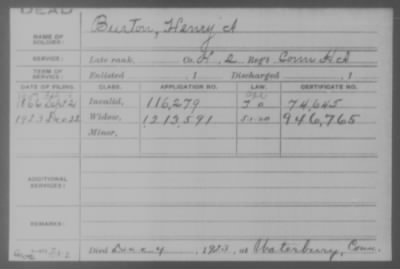 DEAD
NAME OF SOLDIER: Burton, Henry A
SERVICE: Late rank, Co. K, 2 Reg't Conn H A
TERM OF SERVICE: Enlisted , 1 Discharged , 1
DATE OF FILING. CLASS. APPLICATION NO. LAW. CERTIFICATE NO.
1866 Invalid, 116,279 74,645
1923 Dec 22 Widow, 1213,591 946,765
Minor,
ADDITIONAL SERVICES:
REMARKS:
Died Dec 4, 1923, at Waterbury, Conn.